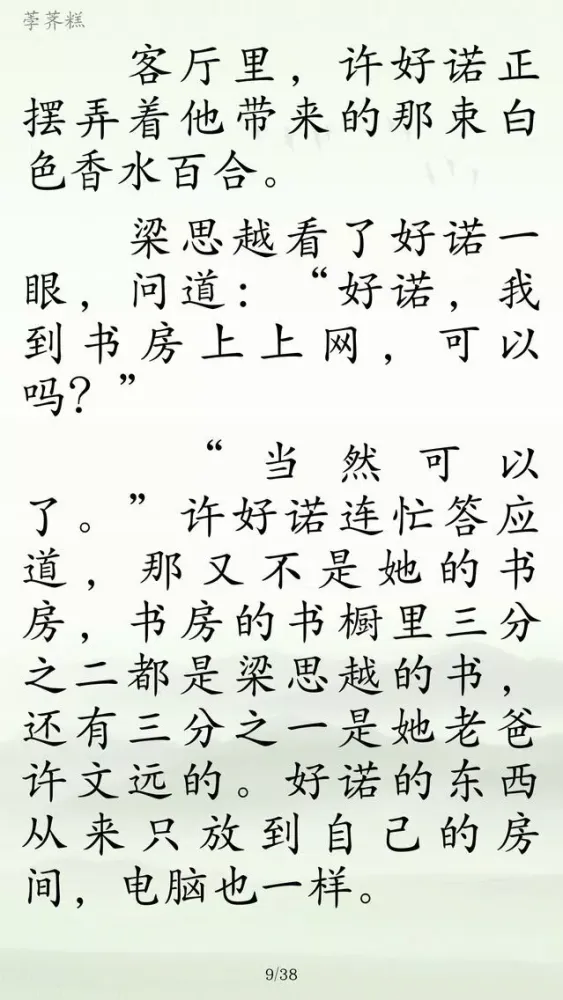 荸荠糕
客厅里，许好诺正
摆弄着他带来的那束白
色香水百合。
梁思越看了好诺一
眼，问道：“好诺，我
到书房上上网，可以
吗？”
“当然可以
了。”许好诺连忙答应
道，那又不是她的书
房，书房的书橱里三分
之二都是梁思越的书，
还有三分之一是她老爸
许文远的。好诺的东西
从来只放到自己的房
间，电脑也一样。
9/38